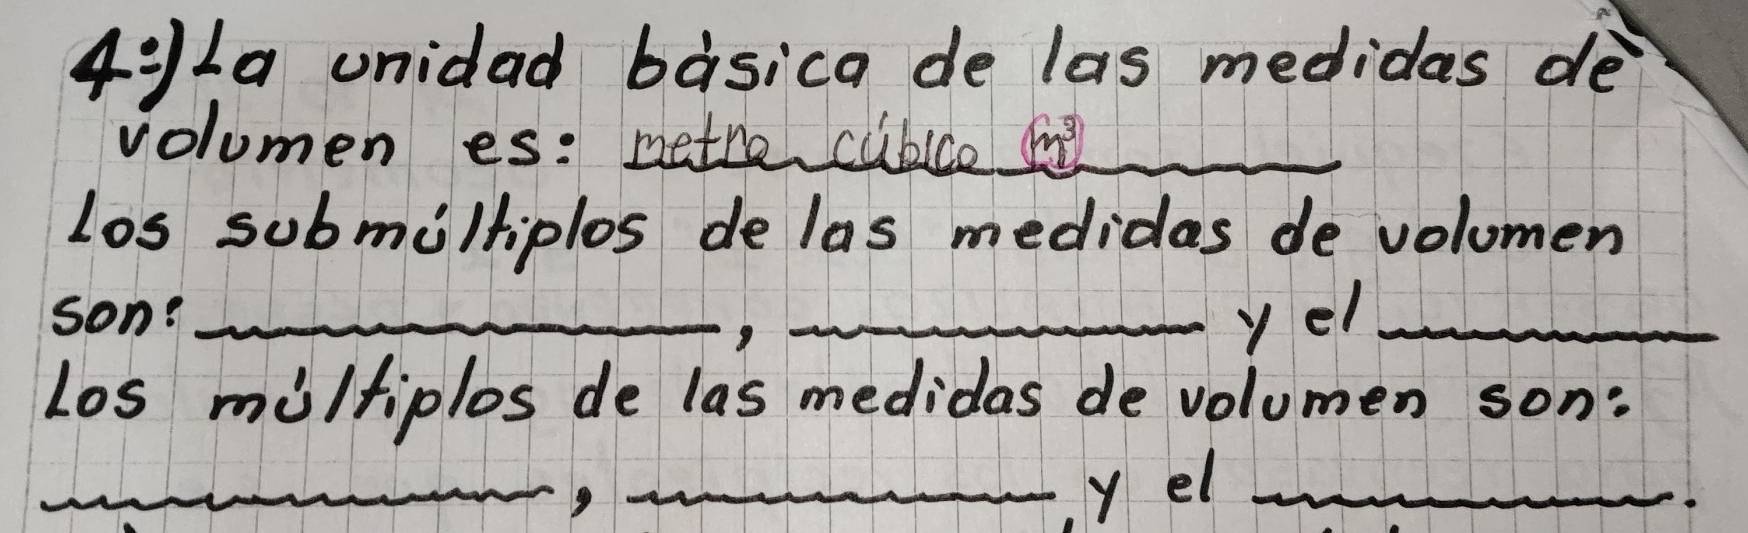 4:) La unidad básica de las medidas de
volumen es: metro cúbico m³
Los submúltiplos de las medidas de volumen
son: ____________, ____________ y el ____________
Los múltiplos de las medidas de volumen son:
____________, ____________ y el ____________.